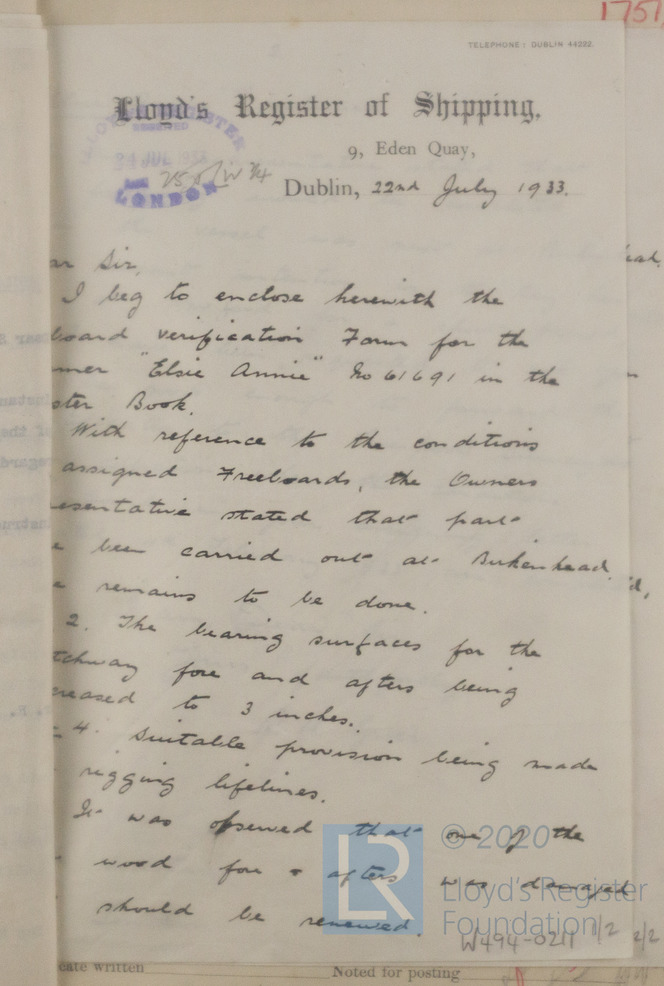 1757
TELEPHONE: DUBLIN 44222.
Lloyd's Register of Shipping,
9, Eden Quay,
Dublin, 22nd July 1933.
LLOYD'S REGISTER
RECEIVED
24 JUL 1933
LONDON
ar Sir,
I beg to enclose herewith the
board verification Form for the
mer "Elsie Annie" No 61691 in the
ster Book.
With reference to the conditions
assigned Freeboards, the Owners
esentative stated that part
e been carried out at Birkenhead
e remains to be done.
2. The bearing surfaces for the
tchway fore and afters being
creased to 3 inches.
4. Suitable provision being made
rigging lifelines.
It was observed that one of the
wood fore & afters was damaged
should be renewed.
© 2020
LR
Lloyd's Register
Foundation
W494-0211 1/2
2/2
cate written
Noted for posting